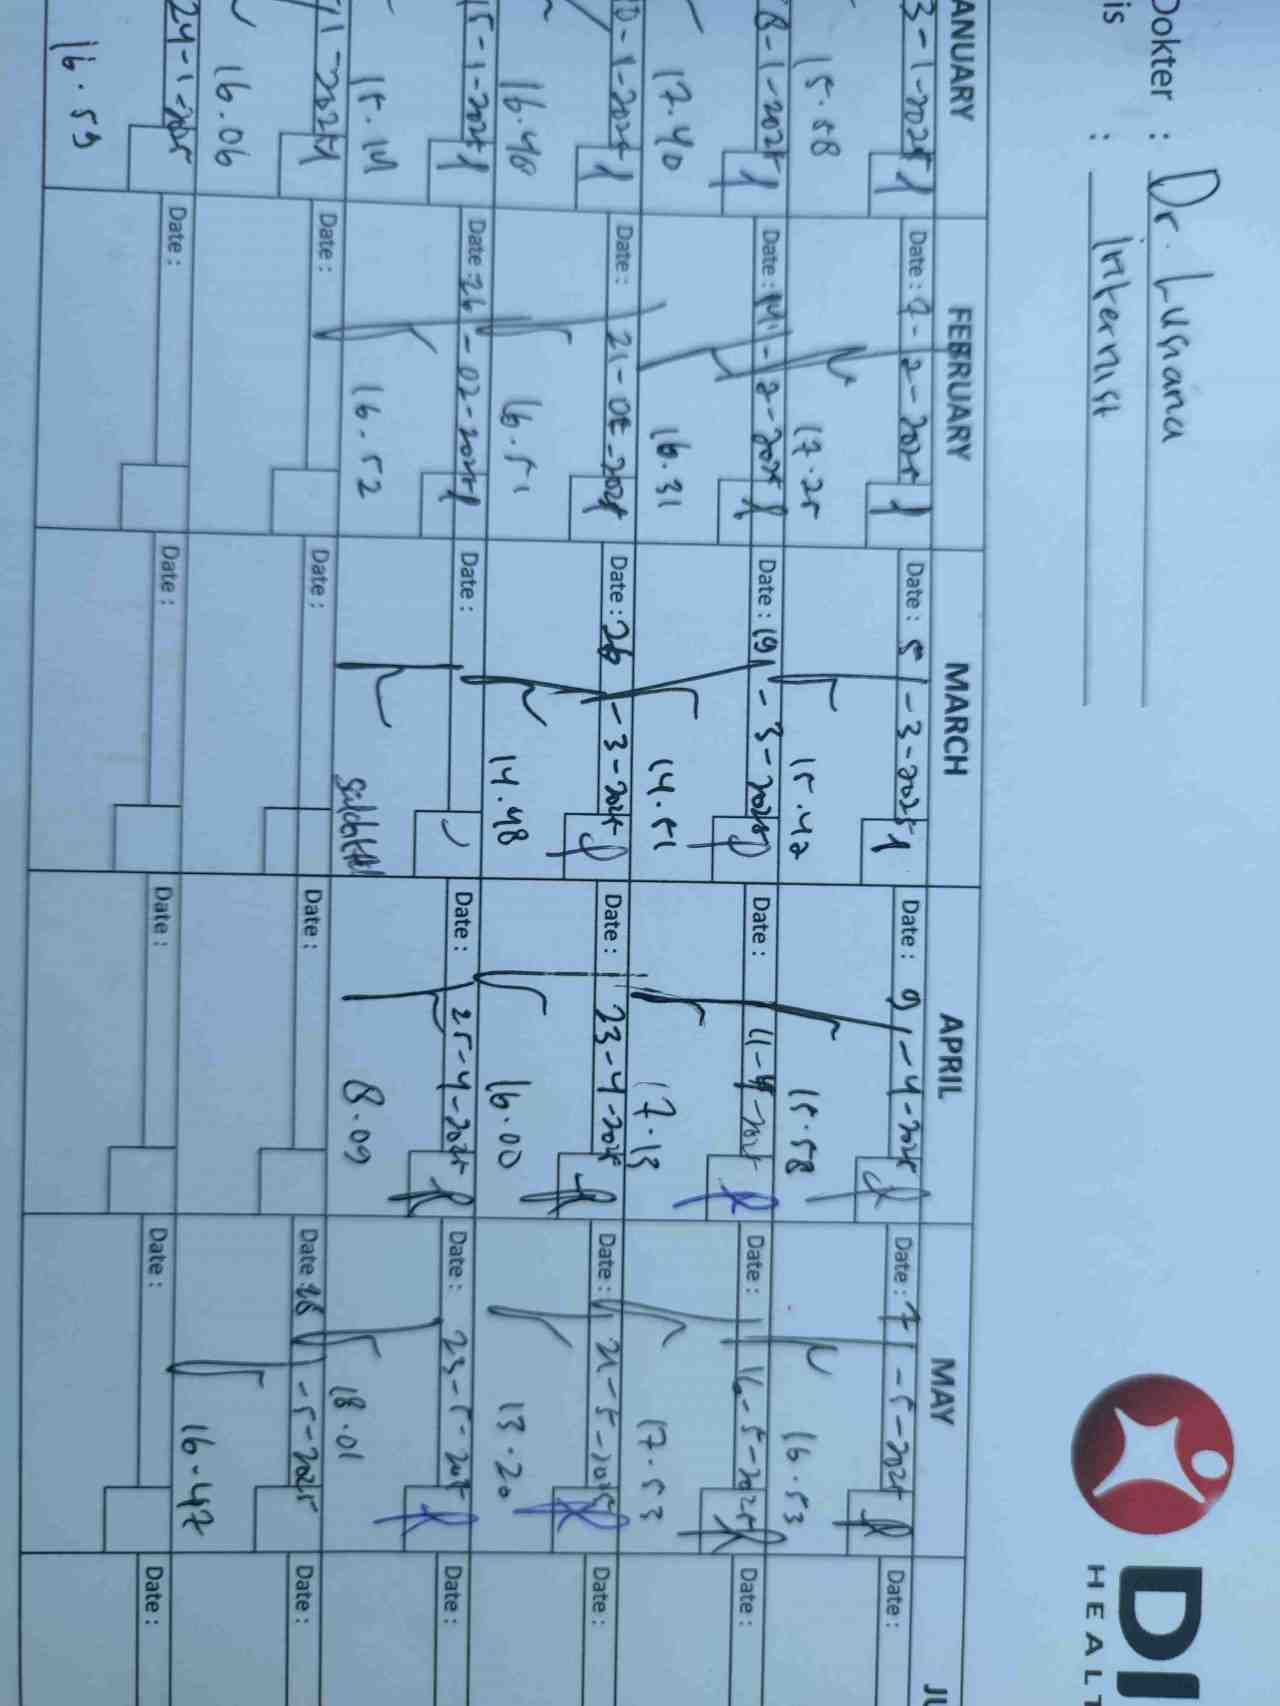 Dokter : Dr. Lusiana
is : Internist
DI
HEALT
ANUARY FEBRUARY MARCH APRIL MAY JU
3-1-2025 Date : 7-2-2025 Date : 5-3-2025 Date : 9-4-2025 Date : 7-5-2025 Date :
15.58 17.25 15.42 15.58 16.53
8-1-2025 Date : 14-2-2025 Date : 19-3-2025 Date : 11-4-2025 Date : 16-5-2025 Date :
17.40 16.31 14.51 17.13 17.53
10-1-2025 Date : 21-02-2025 Date : 26-3-2025 Date : 23-4-2025 Date : 21-5-2025 Date :
16.40 16.51 14.48 16.00 13.20
15-1-2025 Date : 26-02-2025 Date : Date : 25-4-2025 Date : 23-5-2025 Date :
15.14 16.52 8.09 18.01
Date : Date : Date : Date : 28-5-2025 Date :
16.06 16.47
24-1-2025 Date : Date : Date : Date : Date :
16.59